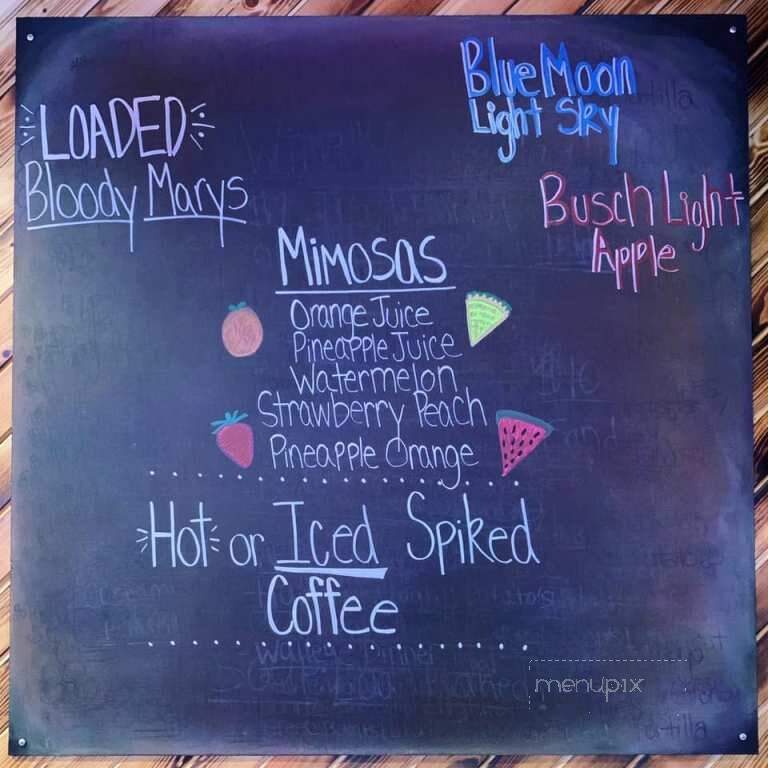 Blue Moon
Light Sky
LOADED
Bloody Marys
Busch Light
Apple
Mimosas
Orange Juice
Pineapple Juice
Watermelon
Strawberry Peach
Pineapple Orange
Hot or Iced Spiked
Coffee
menupix